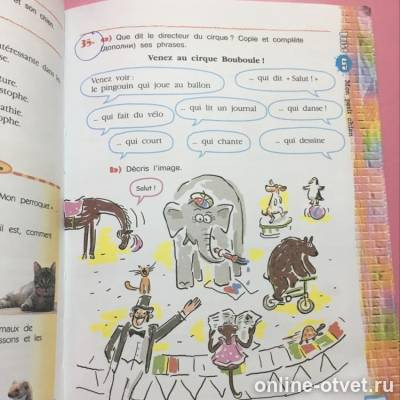 et son chien
ntéressante dans les
se.
ture.
stophe.
athie.
ophe.
Mon perroquet
il est, comment
maux de
ssons et les
35.
a) Que dit le directeur du cirque ? Copie et complète
(дополни) ses phrases.
Venez au cirque Bouboule !
Venez voir :
le pingouin qui joue au ballon
... qui dit « Salut ! »
... qui fait du vélo
... qui lit un journal
... qui danse !
... qui court
... qui chante
... qui dessine
8a) Décris l'image.
Salut !
Mon petit chien
online-otvet.ru